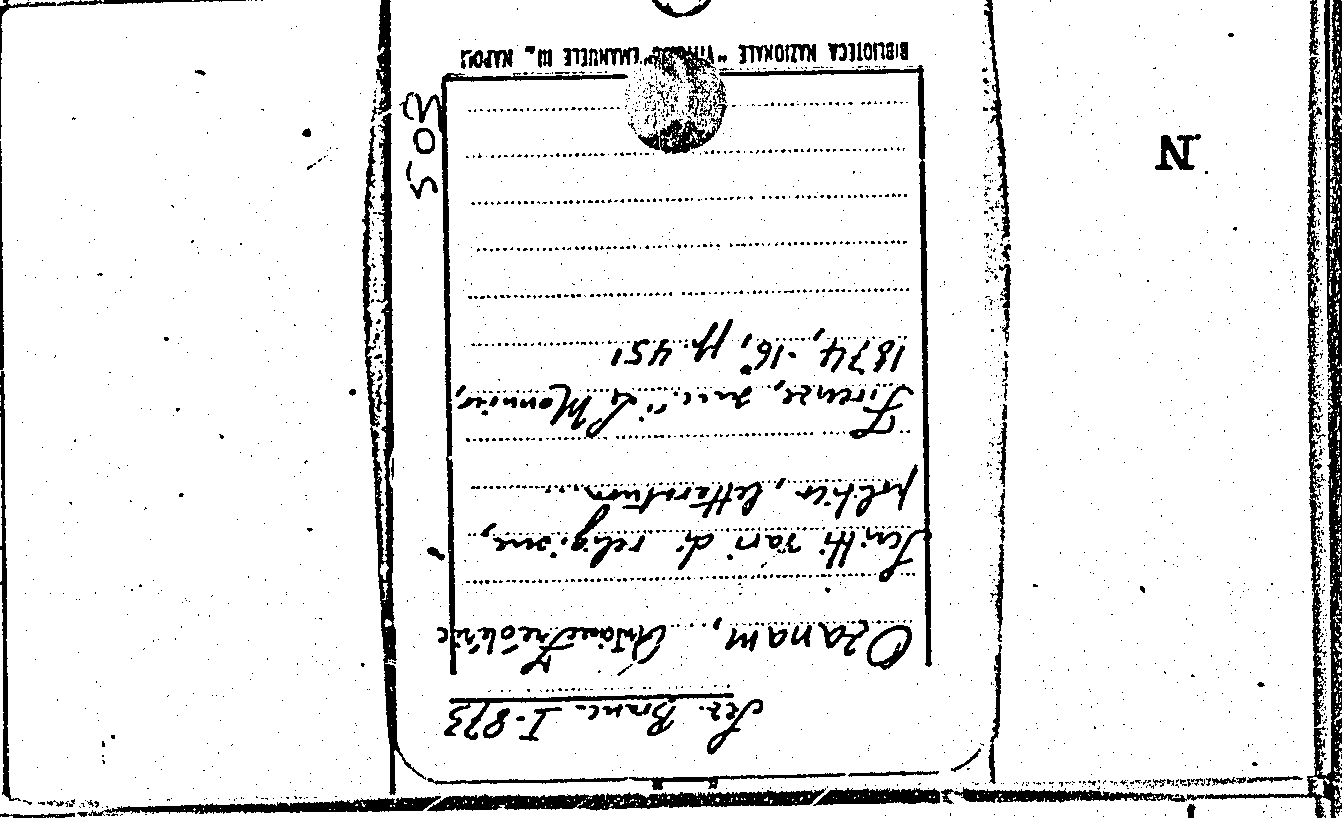 Sez. Branc. I-873
Ozanam, Antoine Frédéric
Scritti vari di religione,
politica, letteratura....
Firenze, succ.i Le Monnier,
1874, -16°, pp. 451
503
BIBLIOTECA NAZIONALE "VITTORIO EMANUELE III„ NAPOLI
N